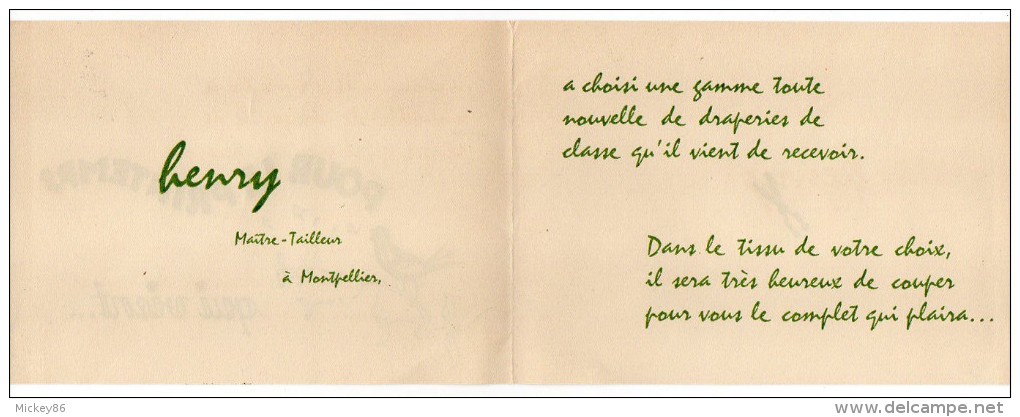 henry
Maître-Tailleur
à Montpellier,
a choisi une gamme toute
nouvelle de draperies de
classe qu'il vient de recevoir.
Dans le tissu de votre choix,
il sera très heureux de couper
pour vous le complet qui plaira...
POUR
PRINTEMPS
qui vient...
Mickey86
delcampe.net